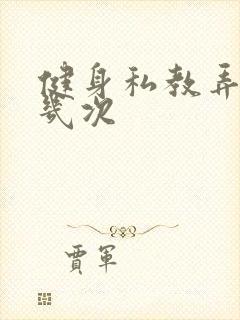 健身私教弄
几次
贾军